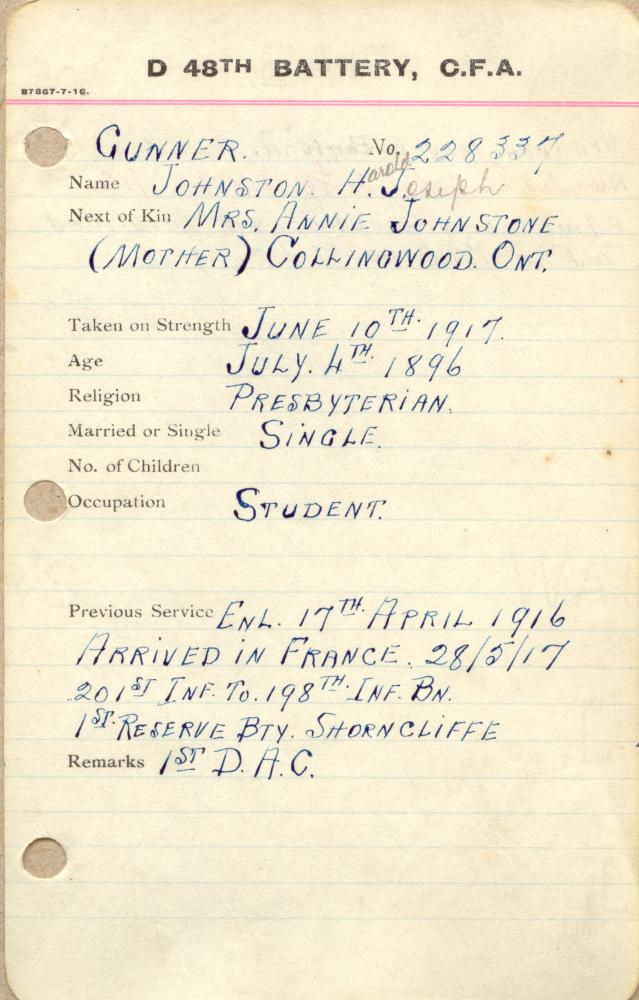 D 48TH BATTERY, C.F.A.
B7867-7-16.
GUNNER. No. 228337
Name JOHNSTON. H.arold J.oseph
Next of Kin MRS. ANNIE JOHNSTONE
(MOTHER) COLLINGWOOD. ONT.
Taken on Strength JUNE 10TH. 1917.
Age JULY. 4TH. 1896
Religion PRESBYTERIAN.
Married or Single SINGLE.
No. of Children
Occupation STUDENT.
Previous Service ENL. 17TH. APRIL 1916
ARRIVED IN FRANCE. 28/5/17
201ST INF. TO. 198TH. INF. BN.
1ST. RESERVE BTY. SHORNCLIFFE
Remarks 1ST D.A.C.